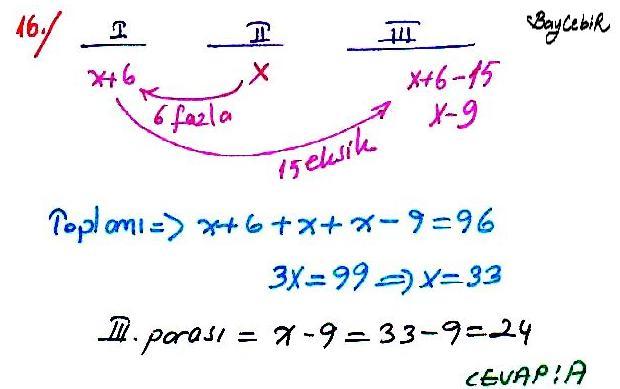 16./ I II III BayCebiR
x+6 x x+6-15
6 fazla x-9
15 eksik
Toplamı=> x+6+x+x-9=96
3x=99 => x=33
III. parası = x-9=33-9=24
CEVAP:A